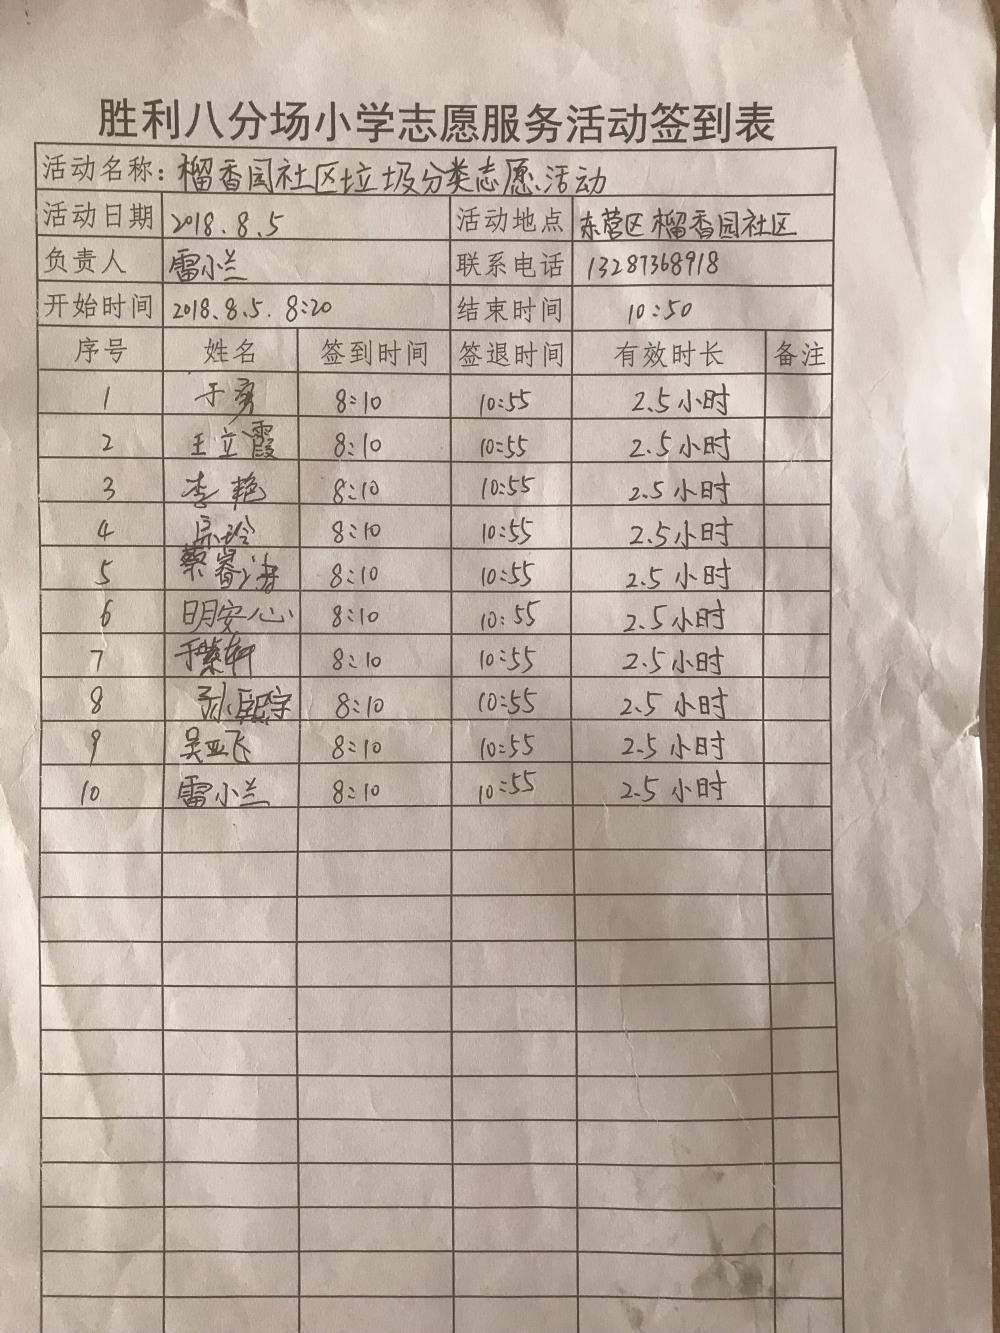 胜利八分场小学志愿服务活动签到表
活动名称：榴香园社区垃圾分类志愿活动
活动日期 2018.8.5 活动地点 东营区榴香园社区
负责人 雷小兰 联系电话 13287368918
开始时间 2018.8.5. 8:20 结束时间 10:50
序号 姓名 签到时间 签退时间 有效时长 备注
1 于勇 8:10 10:55 2.5小时
2 王立霞 8:10 10:55 2.5小时
3 李艳 8:10 10:55 2.5小时
4 8:10 10:55 2.5小时
5 蔡睿 8:10 10:55 2.5小时
6 明安心 8:10 10:55 2.5小时
7 于紫轩 8:10 10:55 2.5小时
8 孙熙宇 8:10 10:55 2.5小时
9 吴亚飞 8:10 10:55 2.5小时
10 雷小兰 8:10 10:55 2.5小时